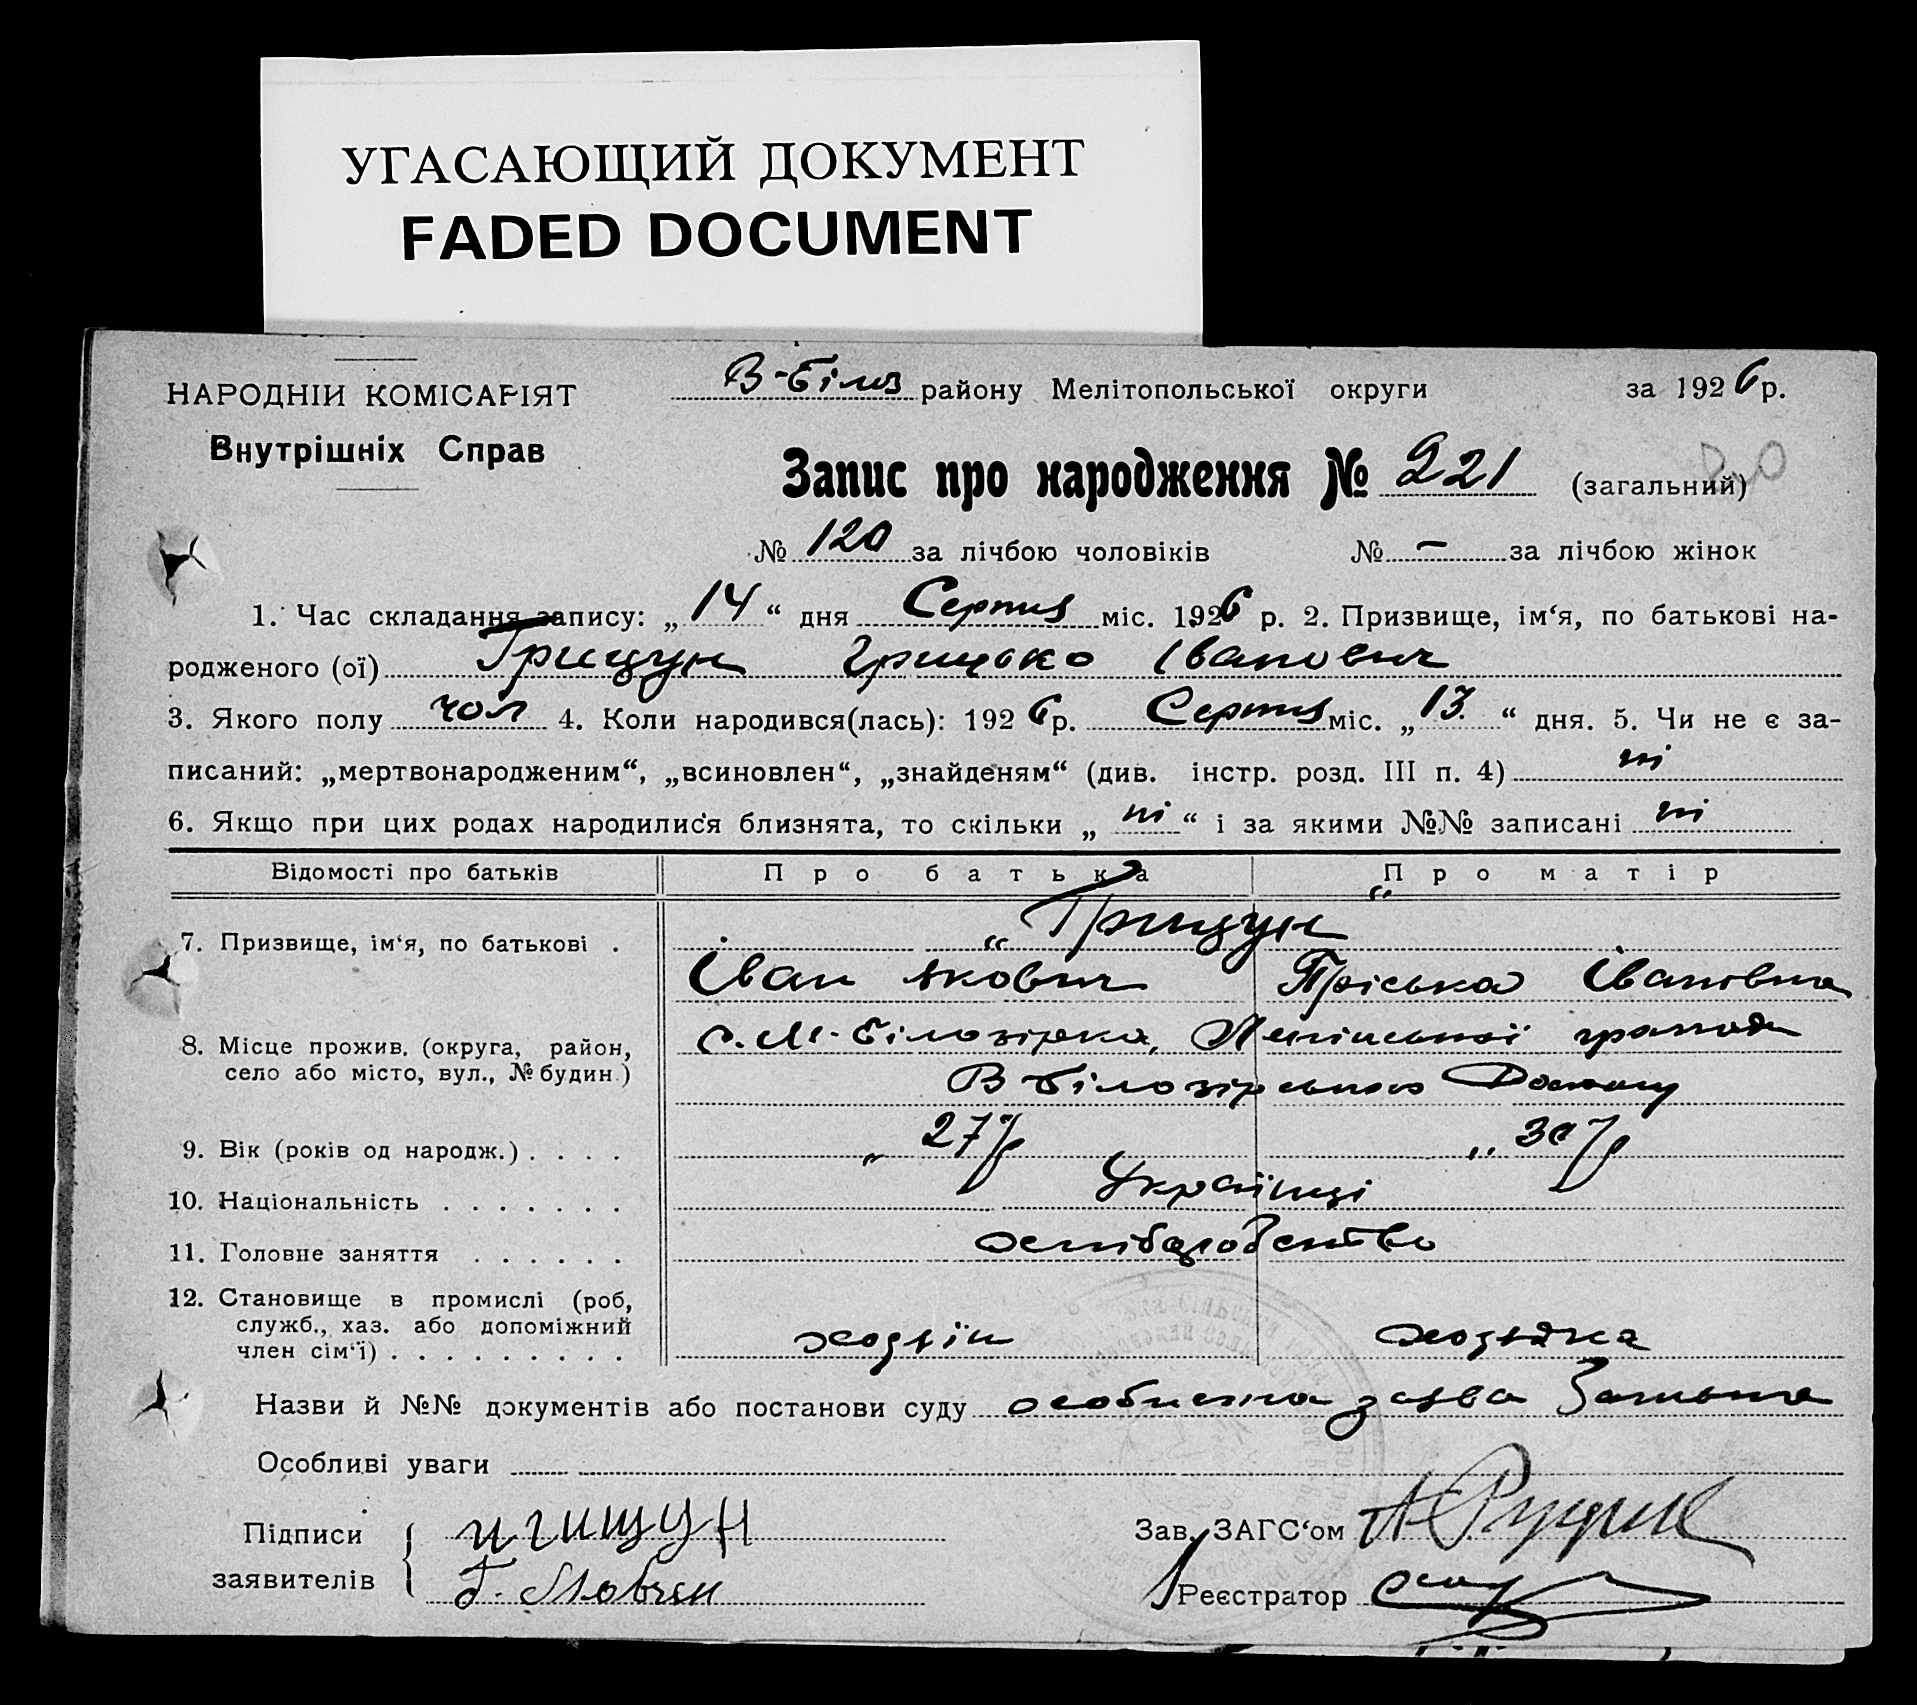 УГАСАЮЩИЙ ДОКУМЕНТ
FADED DOCUMENT
НАРОДНІЙ КОМІСАРІЯТ
Внутрішніх Справ
В-Біло району Мелітопольської округи за 1926 р.
Запис про народження № 221 (загальний)
№ 120 за лічбою чоловіків № - за лічбою жінок
1. Час складання запису: „14“ дня Серпня міс. 1926 р. 2. Призвище, ім‘я, по батькові на-
родженого (ої) Грищун Грицько Іванович
3. Якого полу чол 4. Коли народився(лась): 1926 р. Серпня міс. „13.“ дня. 5. Чи не є за-
писаний: „мертвонародженим“, „всиновлен“, „знайденям“ (див. інстр. розд. III п. 4) ні
6. Якщо при цих родах народилися близнята, то скільки „ні“ і за якими №№ записані ні
Відомості про батьків Про батька Про матір
7. Призвище, ім‘я, по батькові . „ Грищун “
Іван Якович Пріська Іванівна
8. Місце прожив. (округа, район, с. М-Білозірка, Ленінської громади
село або місто, вул., № будин.) В Білозірського Району
9. Вік (років од народж.) . . . . „ 27 р „ 30 р
10. Національність . . . . . . . Українці
11. Головне заняття . . . . . . хліборобство
12. Становище в промислі (роб,
служб., хаз. або допоміжний
член сім‘ї) . . . . . . . . . хозяїн хозяйка
Назви й №№ документів або постанови суду особиста заява
Особливі уваги
Підписи игищун Зав. ЗАГС‘ом
заявителів Г. Мовчан Реєстратор